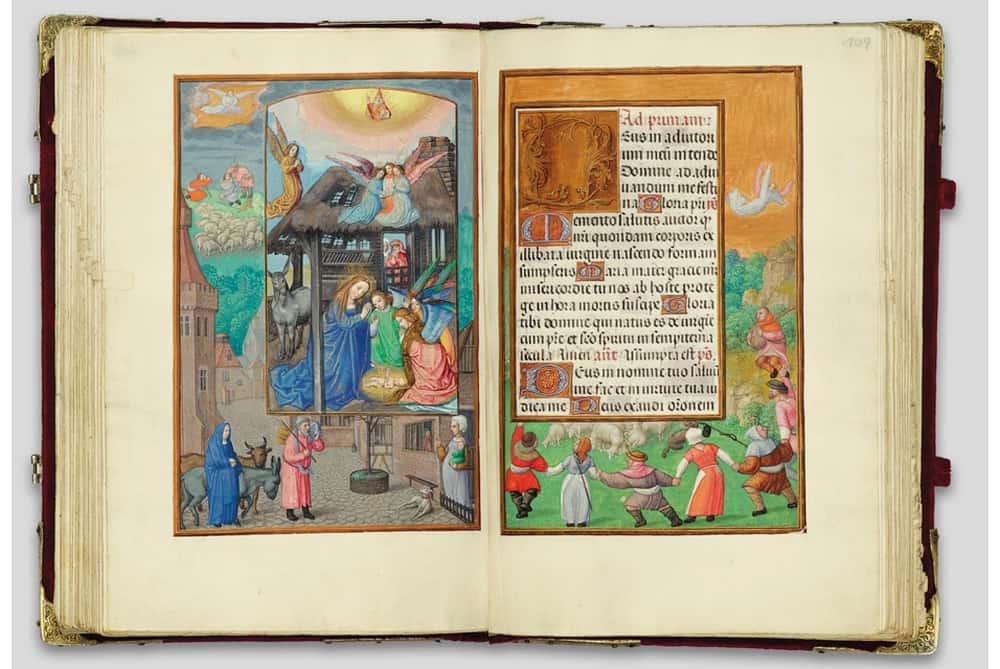 109
Ad primam:
Deus in adiutor
ium meū intende
Domine ad adiu
uandum me festi
na Gloria pr̄i ps
Memento salutis auctor q
nr̄i quondam corporis ex
illibata uirgine nascendo formam
sumpseris Maria mater gracie mr̄
misericordie tu nos ab hoste prote
ge in hora mortis suscipe Gloria
tibi domine qui natus es de uirgīe
cum pr̄e et sc̄o spiritu in sempiterna
secula Amen añt Assumpta est ps
Deus in nomine tuo saluū
me fac et in uirtute tua iu
dica me Deus exaudi orōnem